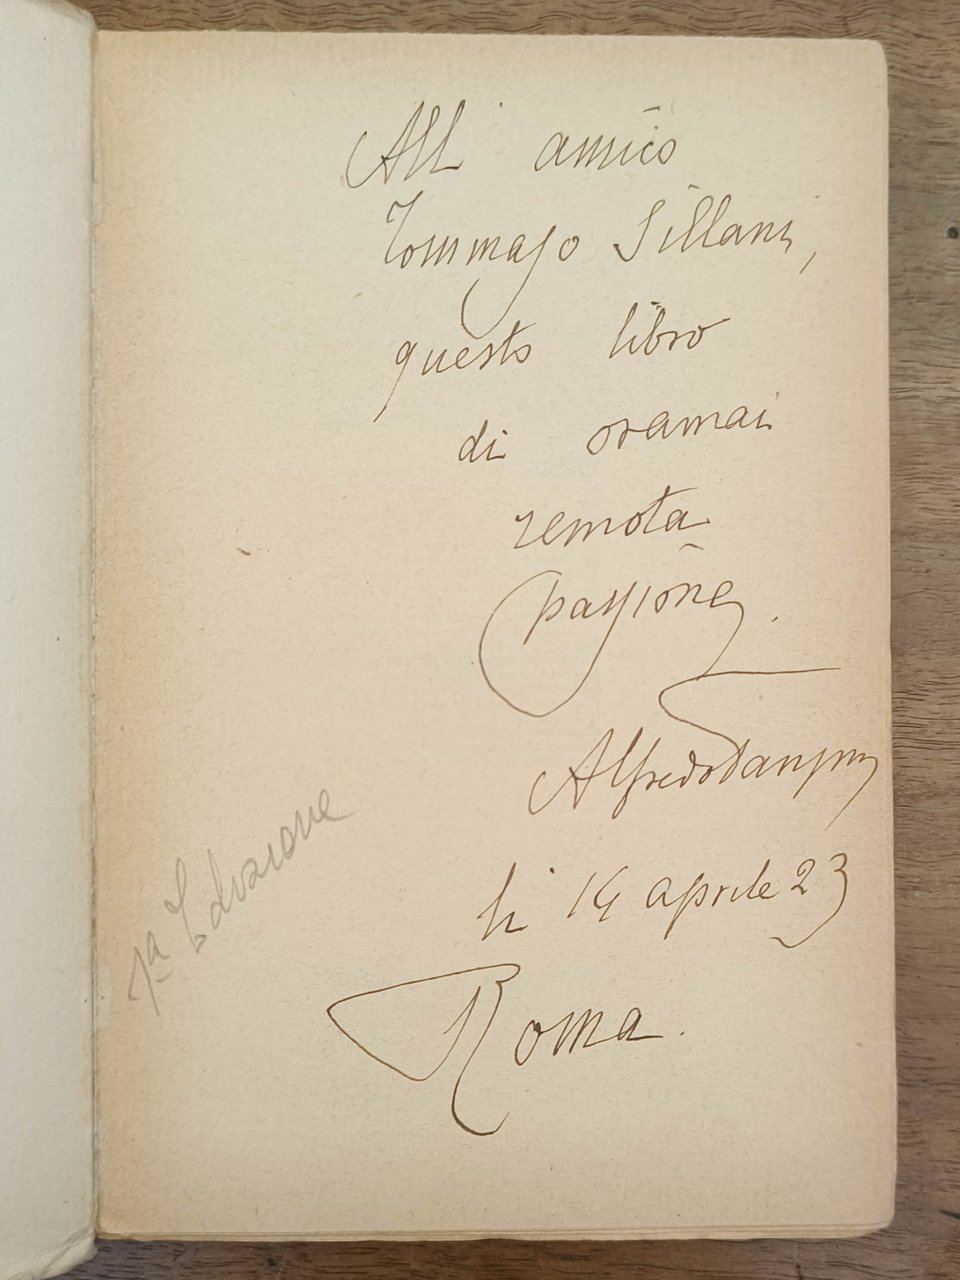 All' amico
Tommaso Sillani,
questo libro
di oramai
remota
passione.
Alfredo Panzini
li 14 aprile 23
Roma.
1a Edizione